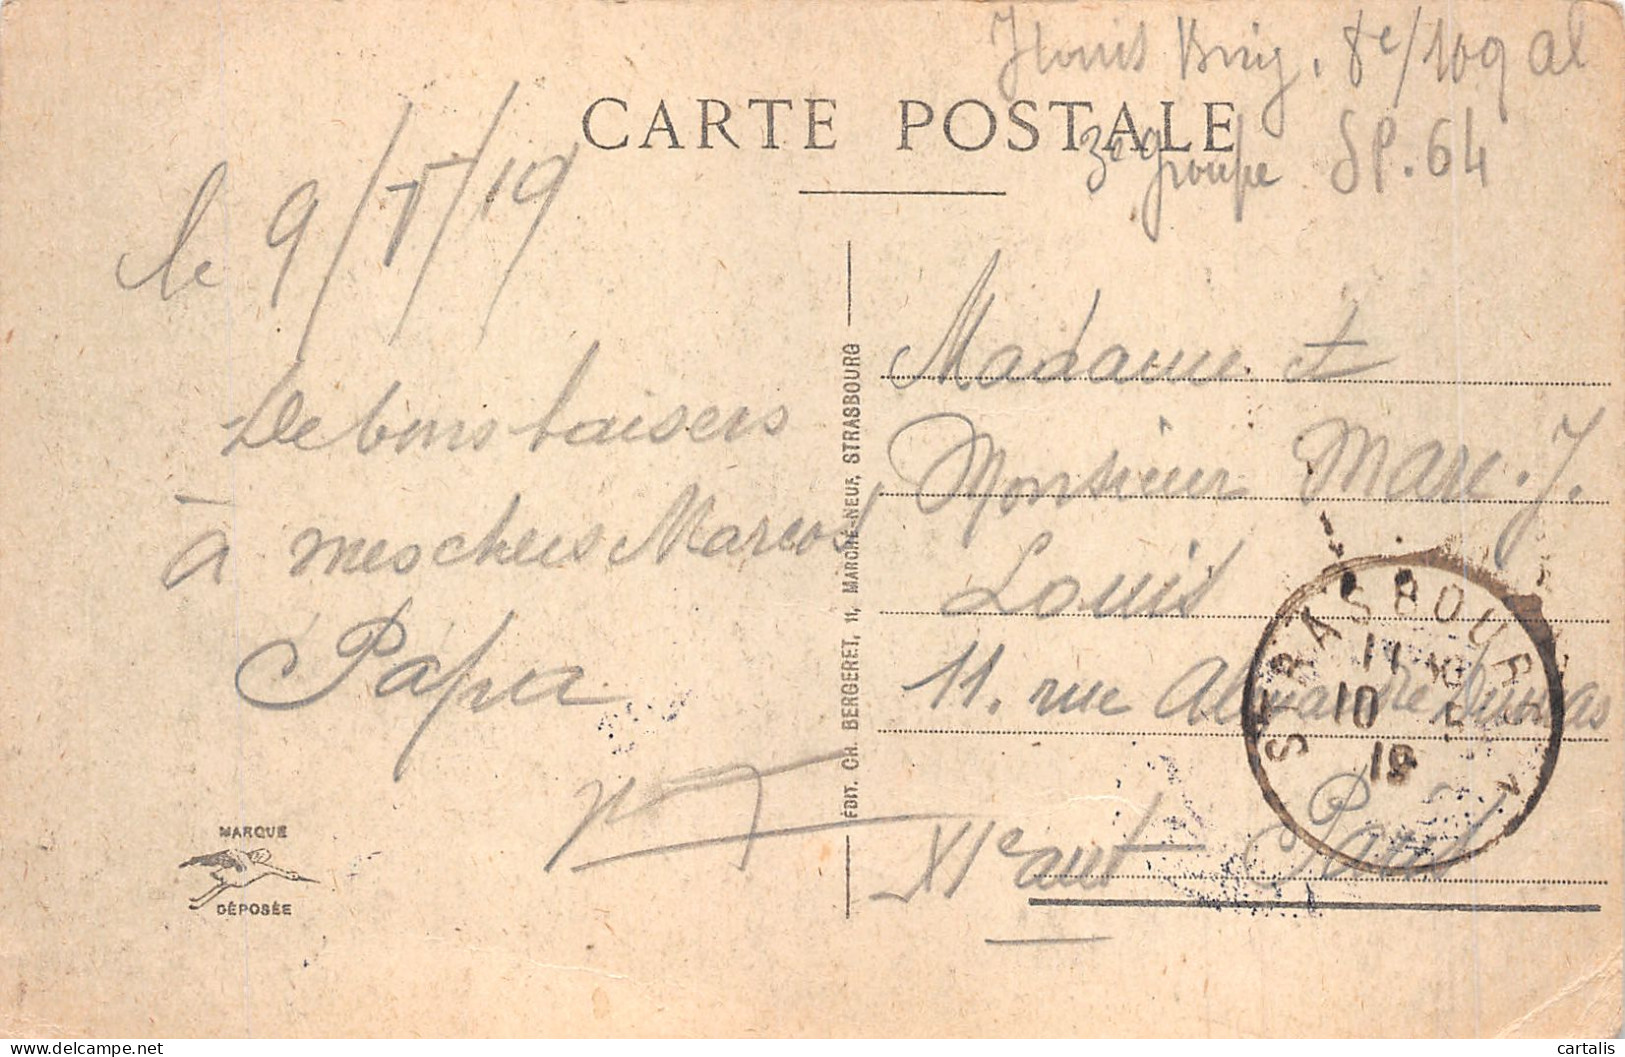 Louis Brig. 8e/109 al
CARTE POSTALE
3e groupe SP. 64
le 9/5/19
De bons baisers
à mes chers Marcos
Papa
MARQUE
DÉPOSÉE
ÉDIT. CH. BERGERET, 11, MARCHÉ-NEUF, STRASBOURG
Madame &
Monsieur Marc. J.
Louis
11. rue Alexandre Dumas
XIe arrt Paris
STRASBOURG
11
10
19
cartalis